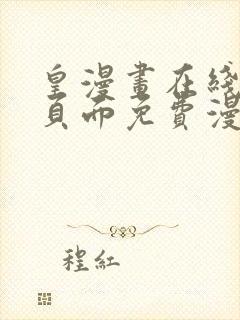 皇漫畫在綫
頁而免費漫
程紅